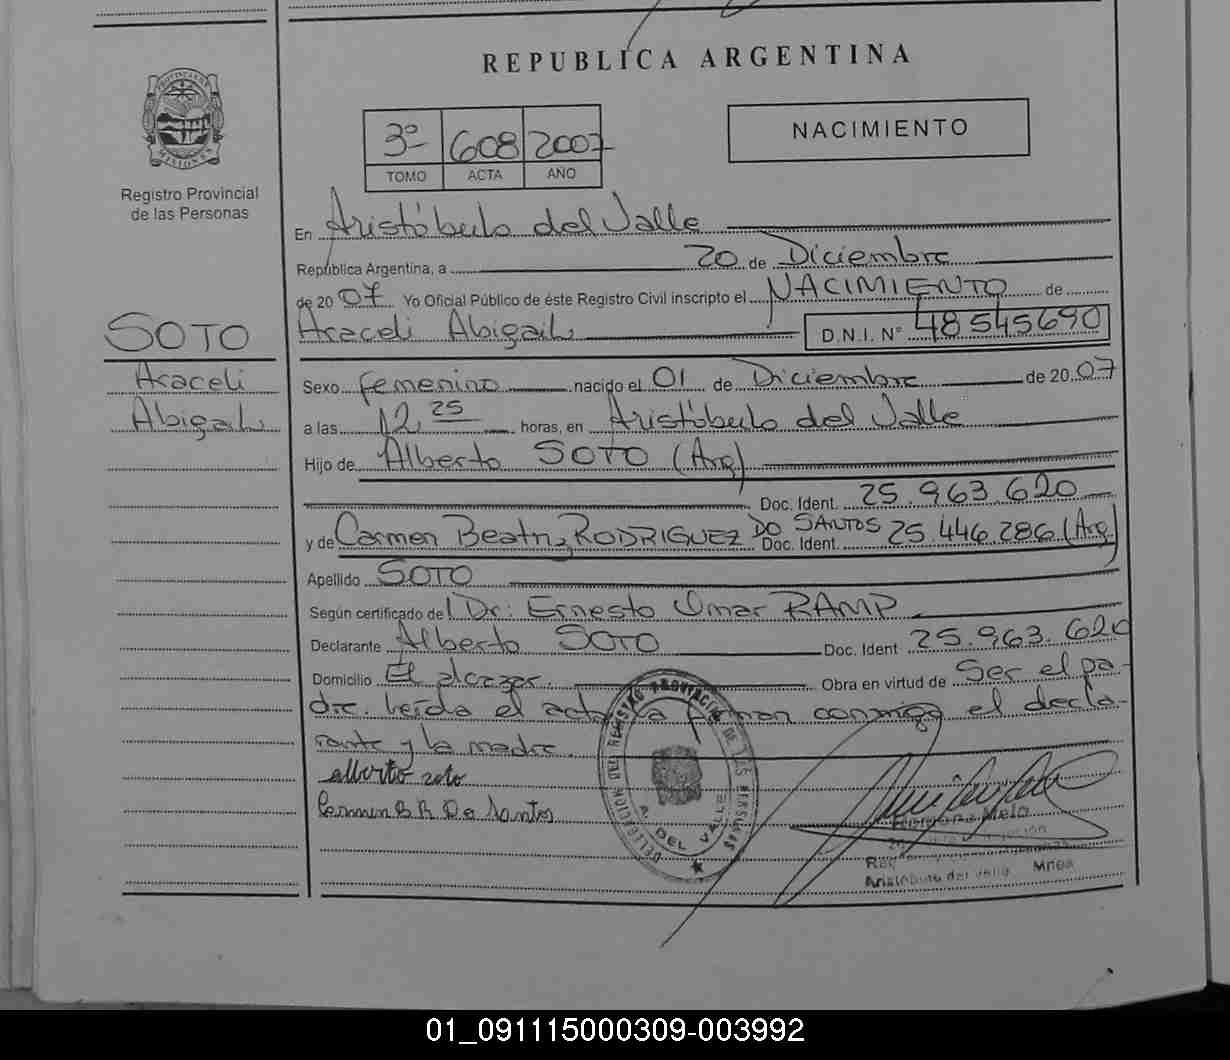 REPUBLICA ARGENTINA
PROVINCIA DE MISIONES
Registro Provincial
de las Personas
3º 608 2007
TOMO ACTA AÑO
NACIMIENTO
En Aristóbulo del Valle
República Argentina, a 20 de Diciembre
de 2007 Yo Oficial Público de éste Registro Civil inscripto el NACIMIENTO de
Araceli Abigail D.N.I. Nº 48545690
SOTO
Araceli
Abigail
Sexo femenino nacido el 01 de Diciembre de 2007
a las 12 25 horas, en Aristóbulo del Valle
Hijo de Alberto SOTO (Arg)
Doc. Ident. 25.963.620
y de Carmen Beatriz RODRIGUEZ DO SANTOS Doc. Ident. 25.446.286 (Arg)
Apellido SOTO
Según certificado del Dr: Ernesto Omar RAMP
Declarante Alberto SOTO Doc. Ident 25.963.620
Domicilio El alcazar. Obra en virtud de Ser el pa-
dre. Leída el acta la firman conmigo el decla-
rante y la madre.
alberto soto
Carmen B R Do Santos
DELEGACION DEL REGISTRO PROVINCIAL DE LAS PERSONAS
A. DEL VALLE
Melo
Aristobulo del Valle Mnes
01_091115000309-003992